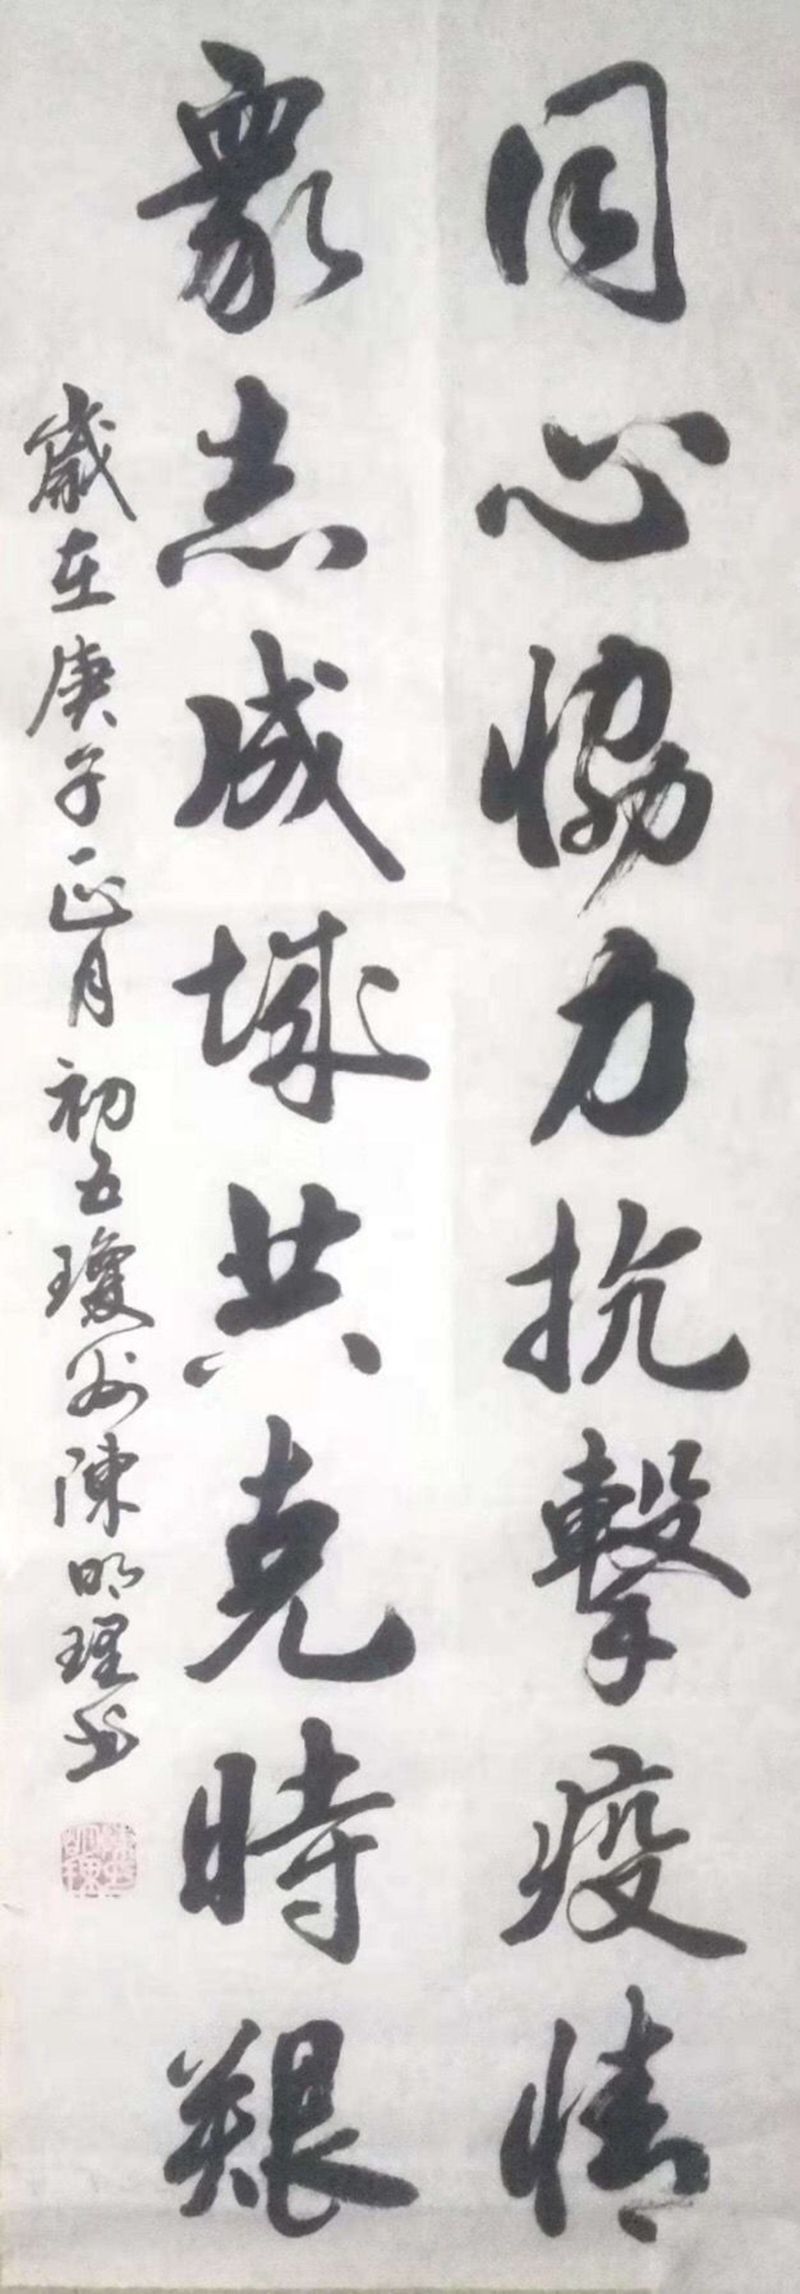 同心恊力抗擊疫情
衆志成城共克時艱
歲在庚子正月初五瓊州陳明理书